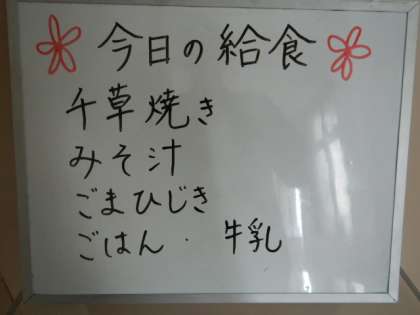 今日の給食
千草焼き
みそ汁
ごまひじき
ごはん・ 牛乳